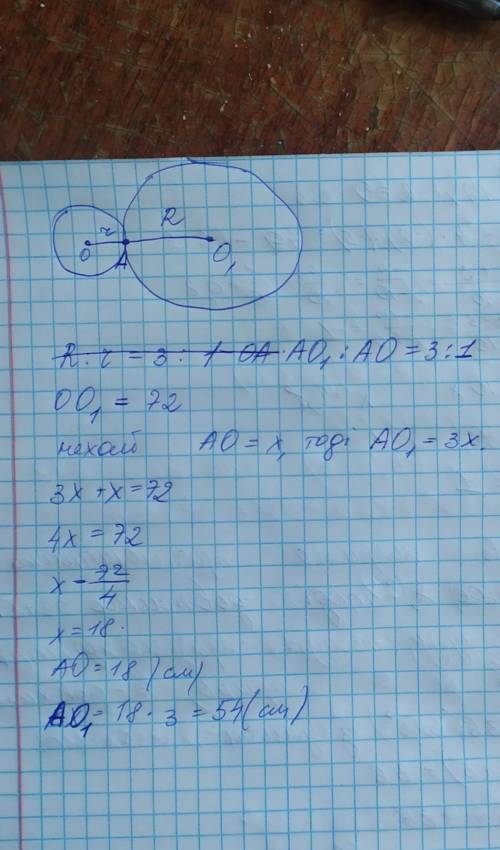 r R
O A O₁
R : r = 3 : 1 OA AO₁ : AO = 3 : 1
OO₁ = 72
нехай AO = x, тоді AO₁ = 3x.
3x + x = 72
4x = 72
x = 72/4
x = 18.
AO = 18 (см)
AO₁ = 18 · 3 = 54 (см)